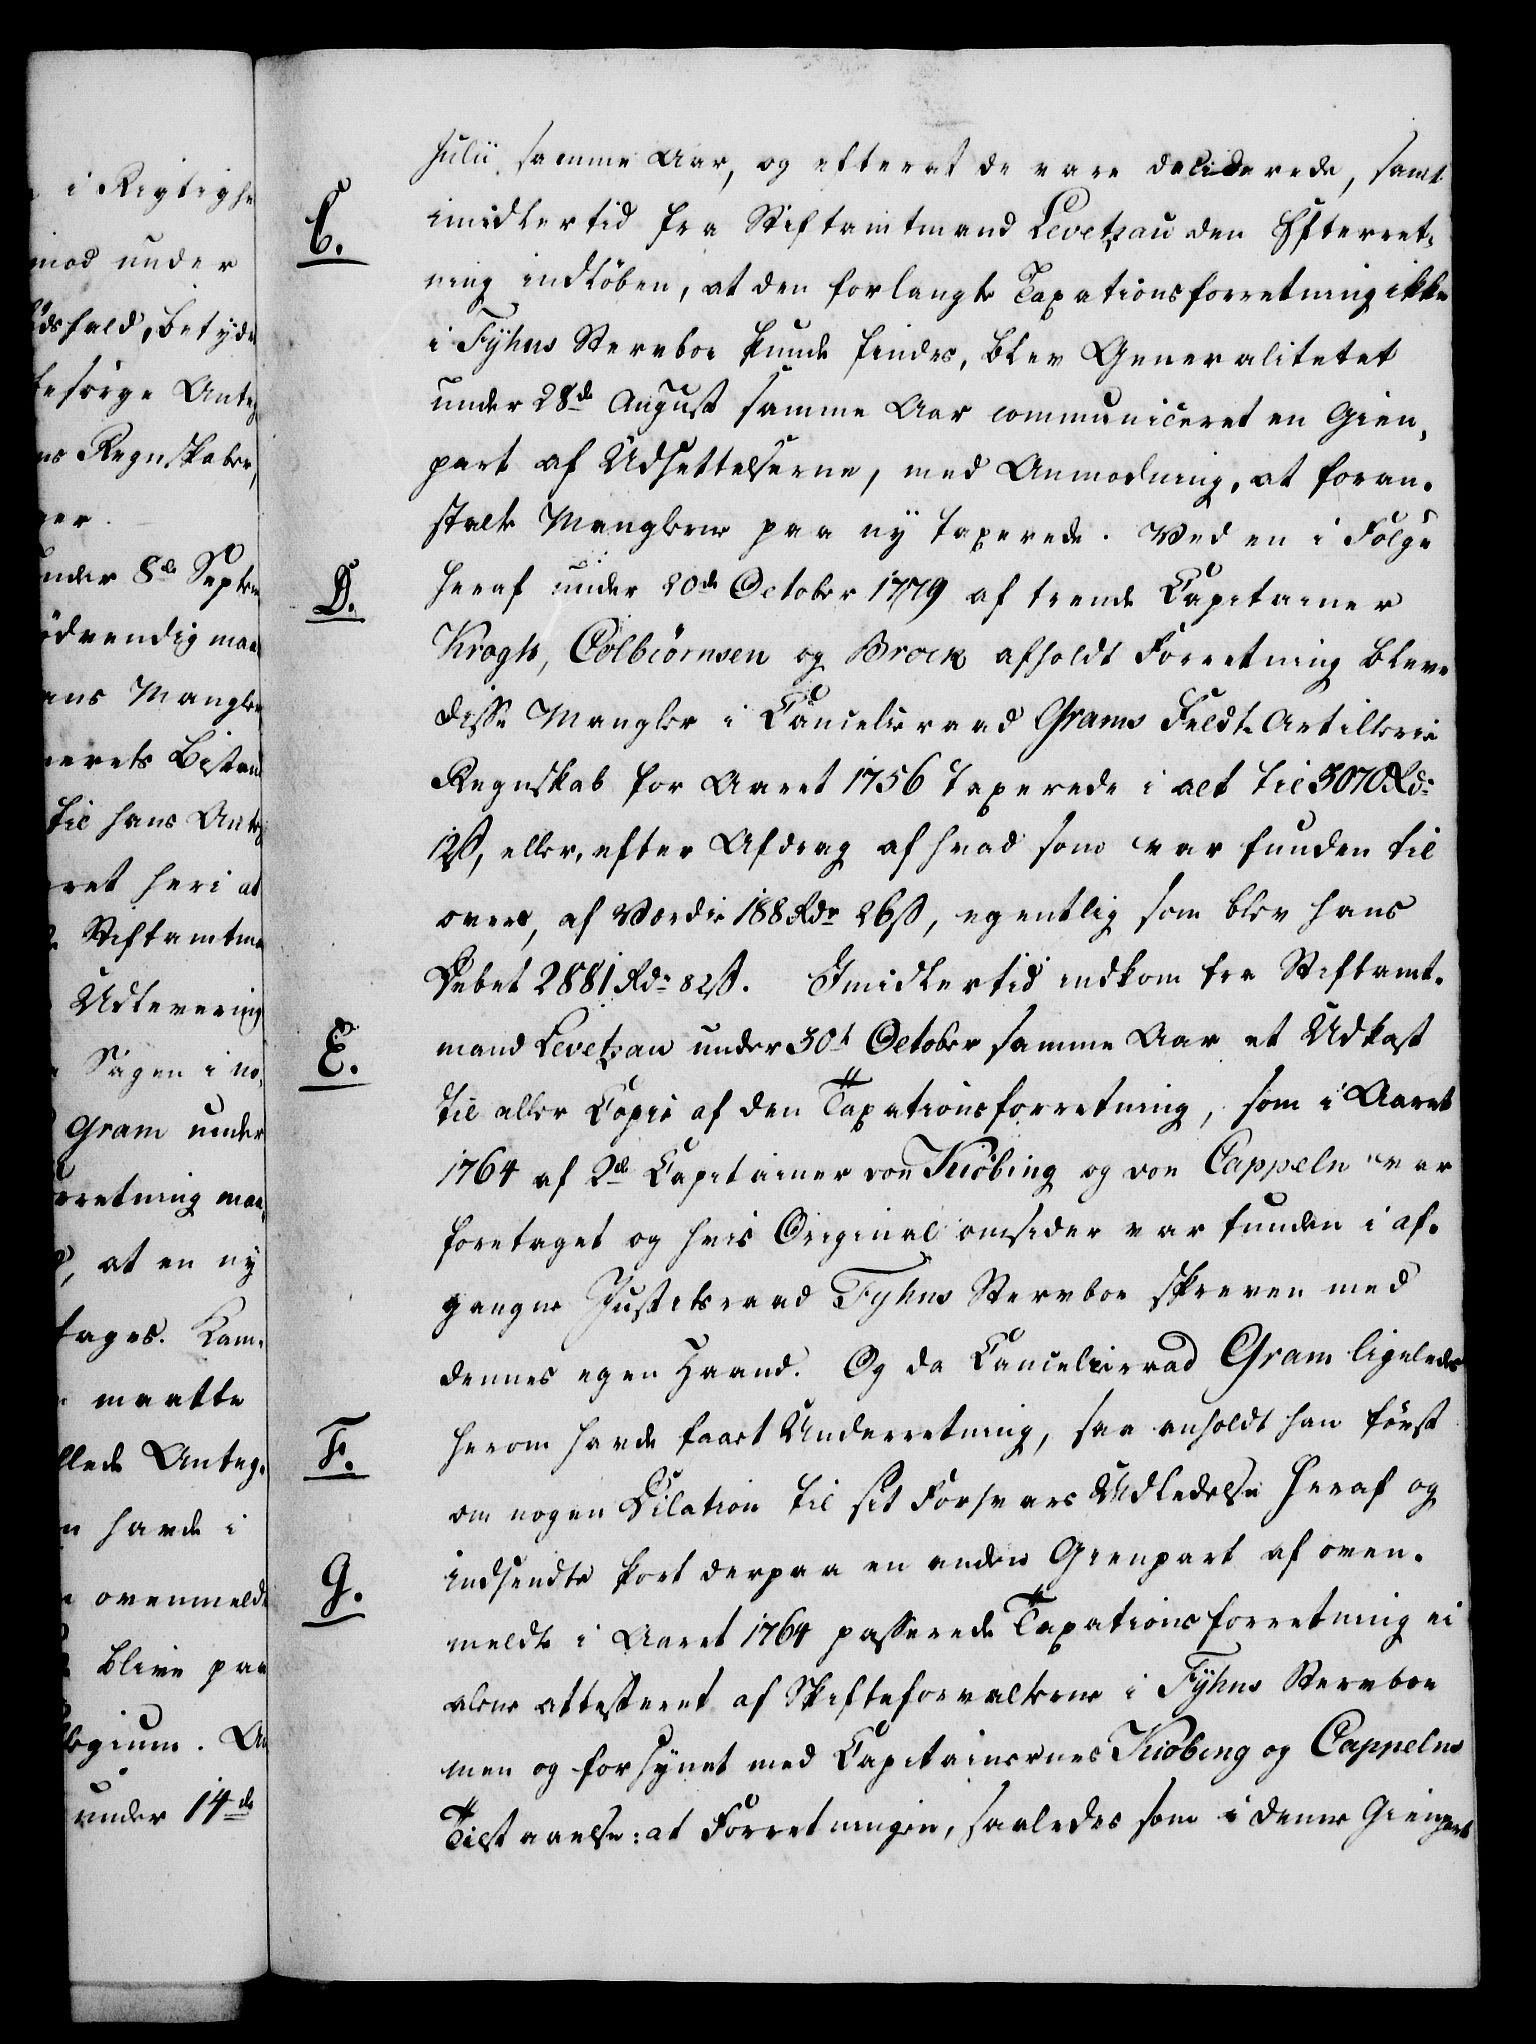 i Rigtighe
mod under
dsfald, betyde
besørge Anteg
ns Regnskaber,
ner.
under 8de Septem
ødvendig maa
ans Mangler
nerets Bistand
til hans Anteg
ret heri at
Stiftamtma
Udlevering
Sagen i no-
Gram under
rretning maa,
, at en ny
tages. Kam-
maatte
llede Anteg-
n havde i
ovenmeldt
blive paa
legium. An
under 14de
Julii samme Aar, og efterat de vare deciderede, samt
C.
imidlertid fra Stiftamtmand Levetzau den Efterret-
ning indløben, at den forlangte Taxationsforretning ikke
i Fyhns Sterboe kunde findes, blev Generalitetet
under 28de August samme Aar communiceret en Gien-
part af Udsettelserne, med Anmodning, at foran-
stalte Manglerne paa ny taxerede. Ved en i Følge
D.
heraf under 20de October 1779 af trende Capitainer
Krogh, Colbiörnsen og Brock afholdt Forretning bleve
disse Mangler i Cancelieraad Grams Feldt-Artillerie
Regnskab for Aaret 1756 taxerede i alt til 3070 Rdr
12 ß, eller, efter Afdrag af hvad som var funden til
overs, af Værdie 188 Rdr 26 ß, egentlig som blev hans
Debet 2881 Rdr 82 ß. Imidlertid indkom fra Stiftamt-
E.
mand Levetzau under 30t October samme Aar et Udkast
til eller Copie af den Taxationsforretning, som i Aaret
1764 af 2de Capitainer von Kiöbing og von Cappeln var
foretaget og hvis Original omsider var funden i af-
gangne Justitsraad Fyhns Sterboe skreven med
dennes egen Haand. Og da Cancelieraad Gram ligeledes
F.
herom havde faaet Underretning, saa anholdt han først
om nogen Dilation til sit Forsvars Udledelse heraf og
G.
indsendte kort derpaa en anden Gienpart af oven-
meldte i Aaret 1764 passerede Taxationsforretning ei
alene attesteret af Skifteforvalterne i Fyhns Sterboe
men og forsynet med Capitainernes Kiöbing og Cappelns
Tilstaaelse: at Forretningen, saaledes som i denne Gienpart